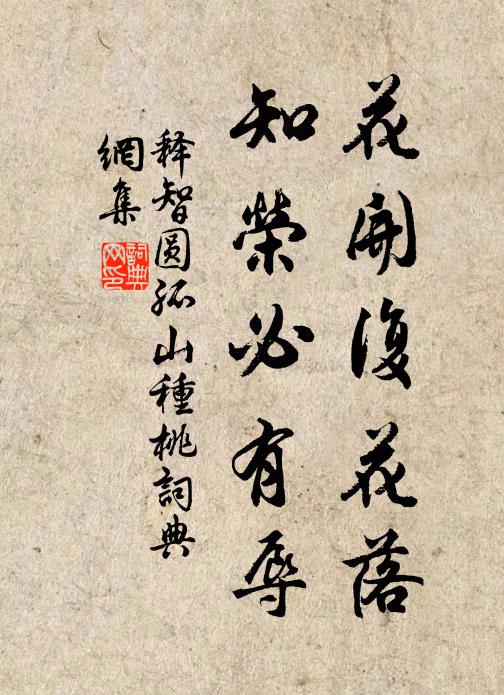 花開復花落
知榮必有辱
释智圆孤山種桃詞典
網集
詞典网印